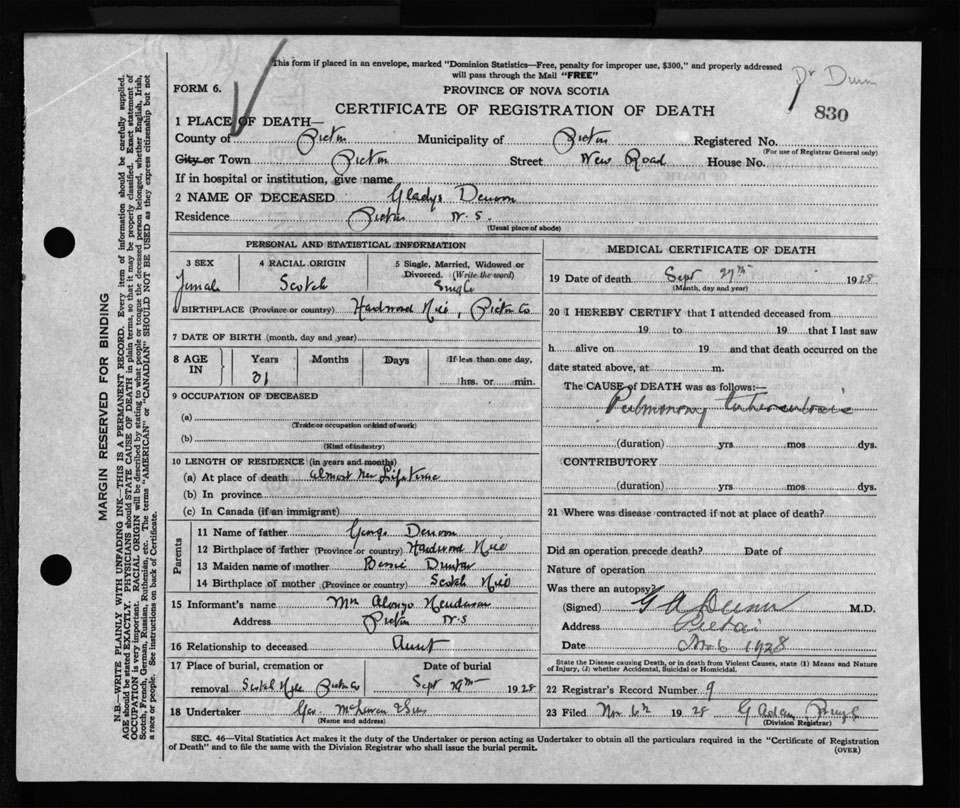 This form if placed in an envelope, marked "Dominion Statistics—Free, penalty for improper use, $300," and properly addressed
will pass through the Mail "FREE"
Dr Dunn
FORM 6.
PROVINCE OF NOVA SCOTIA
830
CERTIFICATE OF REGISTRATION OF DEATH
1 PLACE OF DEATH—
County of Pictou Municipality of Pictou Registered No.
(For use of Registrar General only)
City or Town Pictou Street New Road House No.
If in hospital or institution, give name
2 NAME OF DECEASED Gladys
Residence Pictou N.S.
(Usual place of abode)
PERSONAL AND STATISTICAL INFORMATION
3 SEX 4 RACIAL ORIGIN 5 Single, Married, Widowed or
Divorced. (Write the word)
Female Scotch Single
6 BIRTHPLACE (Province or country) Hardwood Hill, Pictou Co
7 DATE OF BIRTH (month, day and year)
8 AGE IN Years Months Days If less than one day,
31 hrs. or min.
9 OCCUPATION OF DECEASED
(a)
(Trade or occupation or kind of work)
(b)
(Kind of industry)
10 LENGTH OF RESIDENCE (in years and months)
(a) At place of death almost her lifetime
(b) In province
(c) In Canada (if an immigrant)
Parents
11 Name of father George
12 Birthplace of father (Province or country) Hardwood Hill
13 Maiden name of mother Bessie Dunbar
14 Birthplace of mother (Province or country) Scotch Hill
15 Informant's name Mrs Alonzo Henderson
Address Pictou N.S
16 Relationship to deceased Aunt
17 Place of burial, cremation or Date of burial
removal Scotch Hill Pictou Co Sept 29th 1928
18 Undertaker Geo. McLaren & Son
(Name and address)
MEDICAL CERTIFICATE OF DEATH
19 Date of death Sept 27th 1928
(Month, day and year)
20 I HEREBY CERTIFY that I attended deceased from
19 to 19 that I last saw
h alive on 19 and that death occurred on the
date stated above, at m.
The CAUSE of DEATH was as follows:—
Pulmonary tuberculosis
(duration) yrs mos dys.
CONTRIBUTORY
(duration) yrs mos dys.
21 Where was disease contracted if not at place of death?
Did an operation precede death? Date of
Nature of operation
Was there an autopsy?
(Signed) G A Dunn M.D.
Address Pictou
Date Nov 6 1928
State the Disease causing Death, or in death from Violent Causes, state (1) Means and Nature
of Injury, (2) whether Accidental, Suicidal or Homicidal.
22 Registrar's Record Number 9
23 Filed Nov 6th 1928 G Adam
(Division Registrar)
SEC. 46—Vital Statistics Act makes it the duty of the Undertaker or person acting as Undertaker to obtain all the particulars required in the "Certificate of Registration
of Death" and to file the same with the Division Registrar who shall issue the burial permit.
(OVER)
MARGIN RESERVED FOR BINDING
N.B—WRITE PLAINLY WITH UNFADING INK—THIS IS A PERMANENT RECORD. Every item of information should be carefully supplied.
AGE should be stated EXACTLY. PHYSICIANS should STATE CAUSE OF DEATH in plain terms, so that it may be properly classified. Exact statement of
OCCUPATION is very important. RACIAL ORIGIN will be described by stating to what people or tongue the deceased person belonged, whether English, Irish,
Scotch, French, German, Russian, Ruthenian, etc. The terms "AMERICAN" or "CANADIAN" SHOULD NOT BE USED as they express citizenship but not
a race or people. See instructions on back of Certificate.